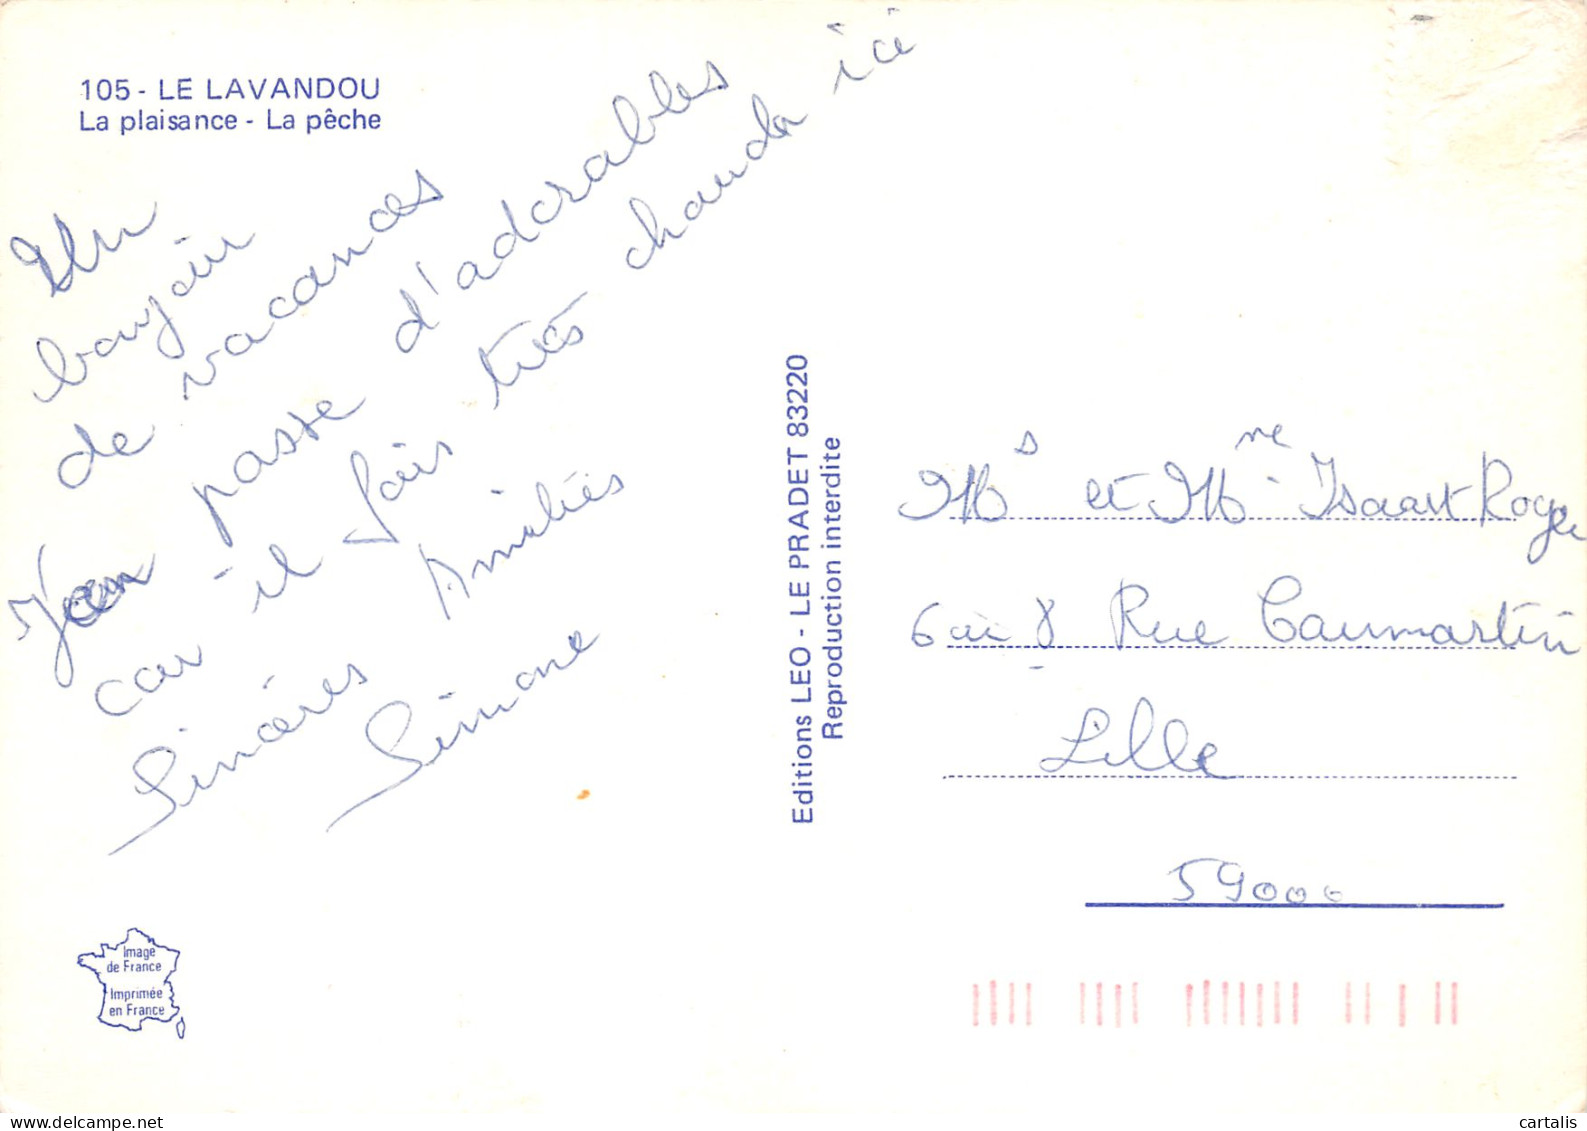 105 - LE LAVANDOU
La plaisance - La pêche
Un
bonjour
de vacances
passe d'adorables
car il fais très chaud ici
Sincères Amitiés
Simone
Editions LEO - LE PRADET 83220
Reproduction interdite
Ms et Mme Isaart Roger
6 au 8 Rue Caumartin
Lille
59000
Image
de France
Imprimée
en France
cartalis